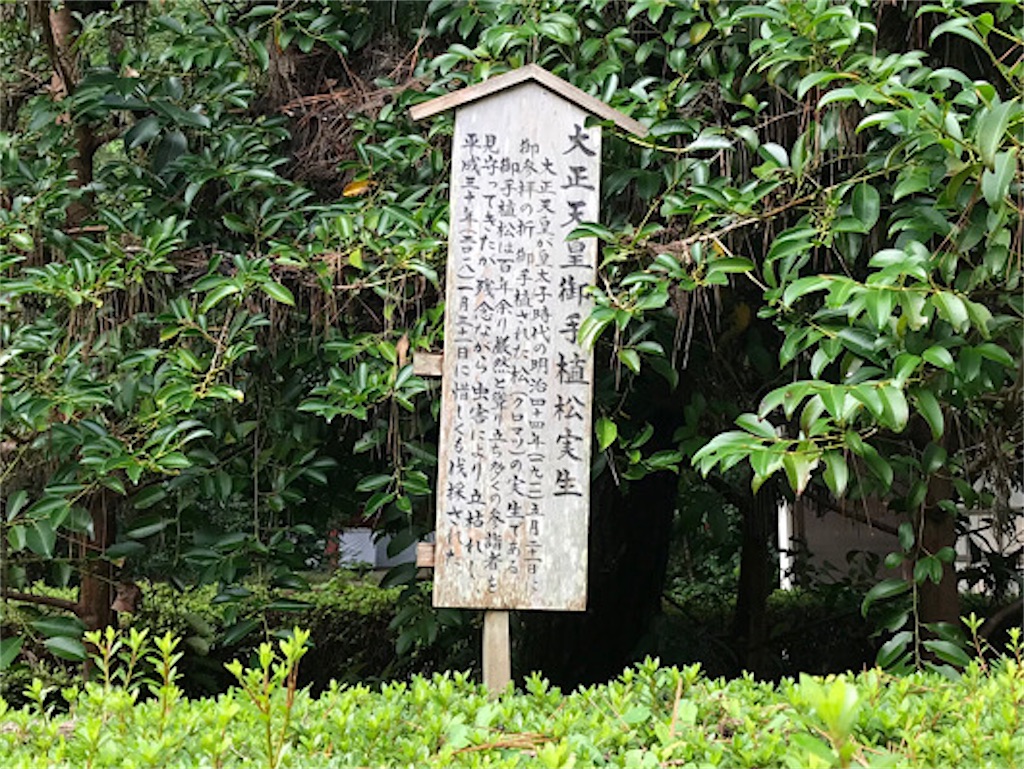 大正天皇御手植松実生
大正天皇が皇太子時代の明治四十四年(一九一一)五月二十一日に
御参拝の折、御手植された松(クロマツ)の実生である
御手植松は百年余り厳然と聳り立ち多くの参詣者を
見守ってきたが残念ながら虫害により立枯れし
平成三十年(二〇一八)一月三十一日に惜しくも伐採された